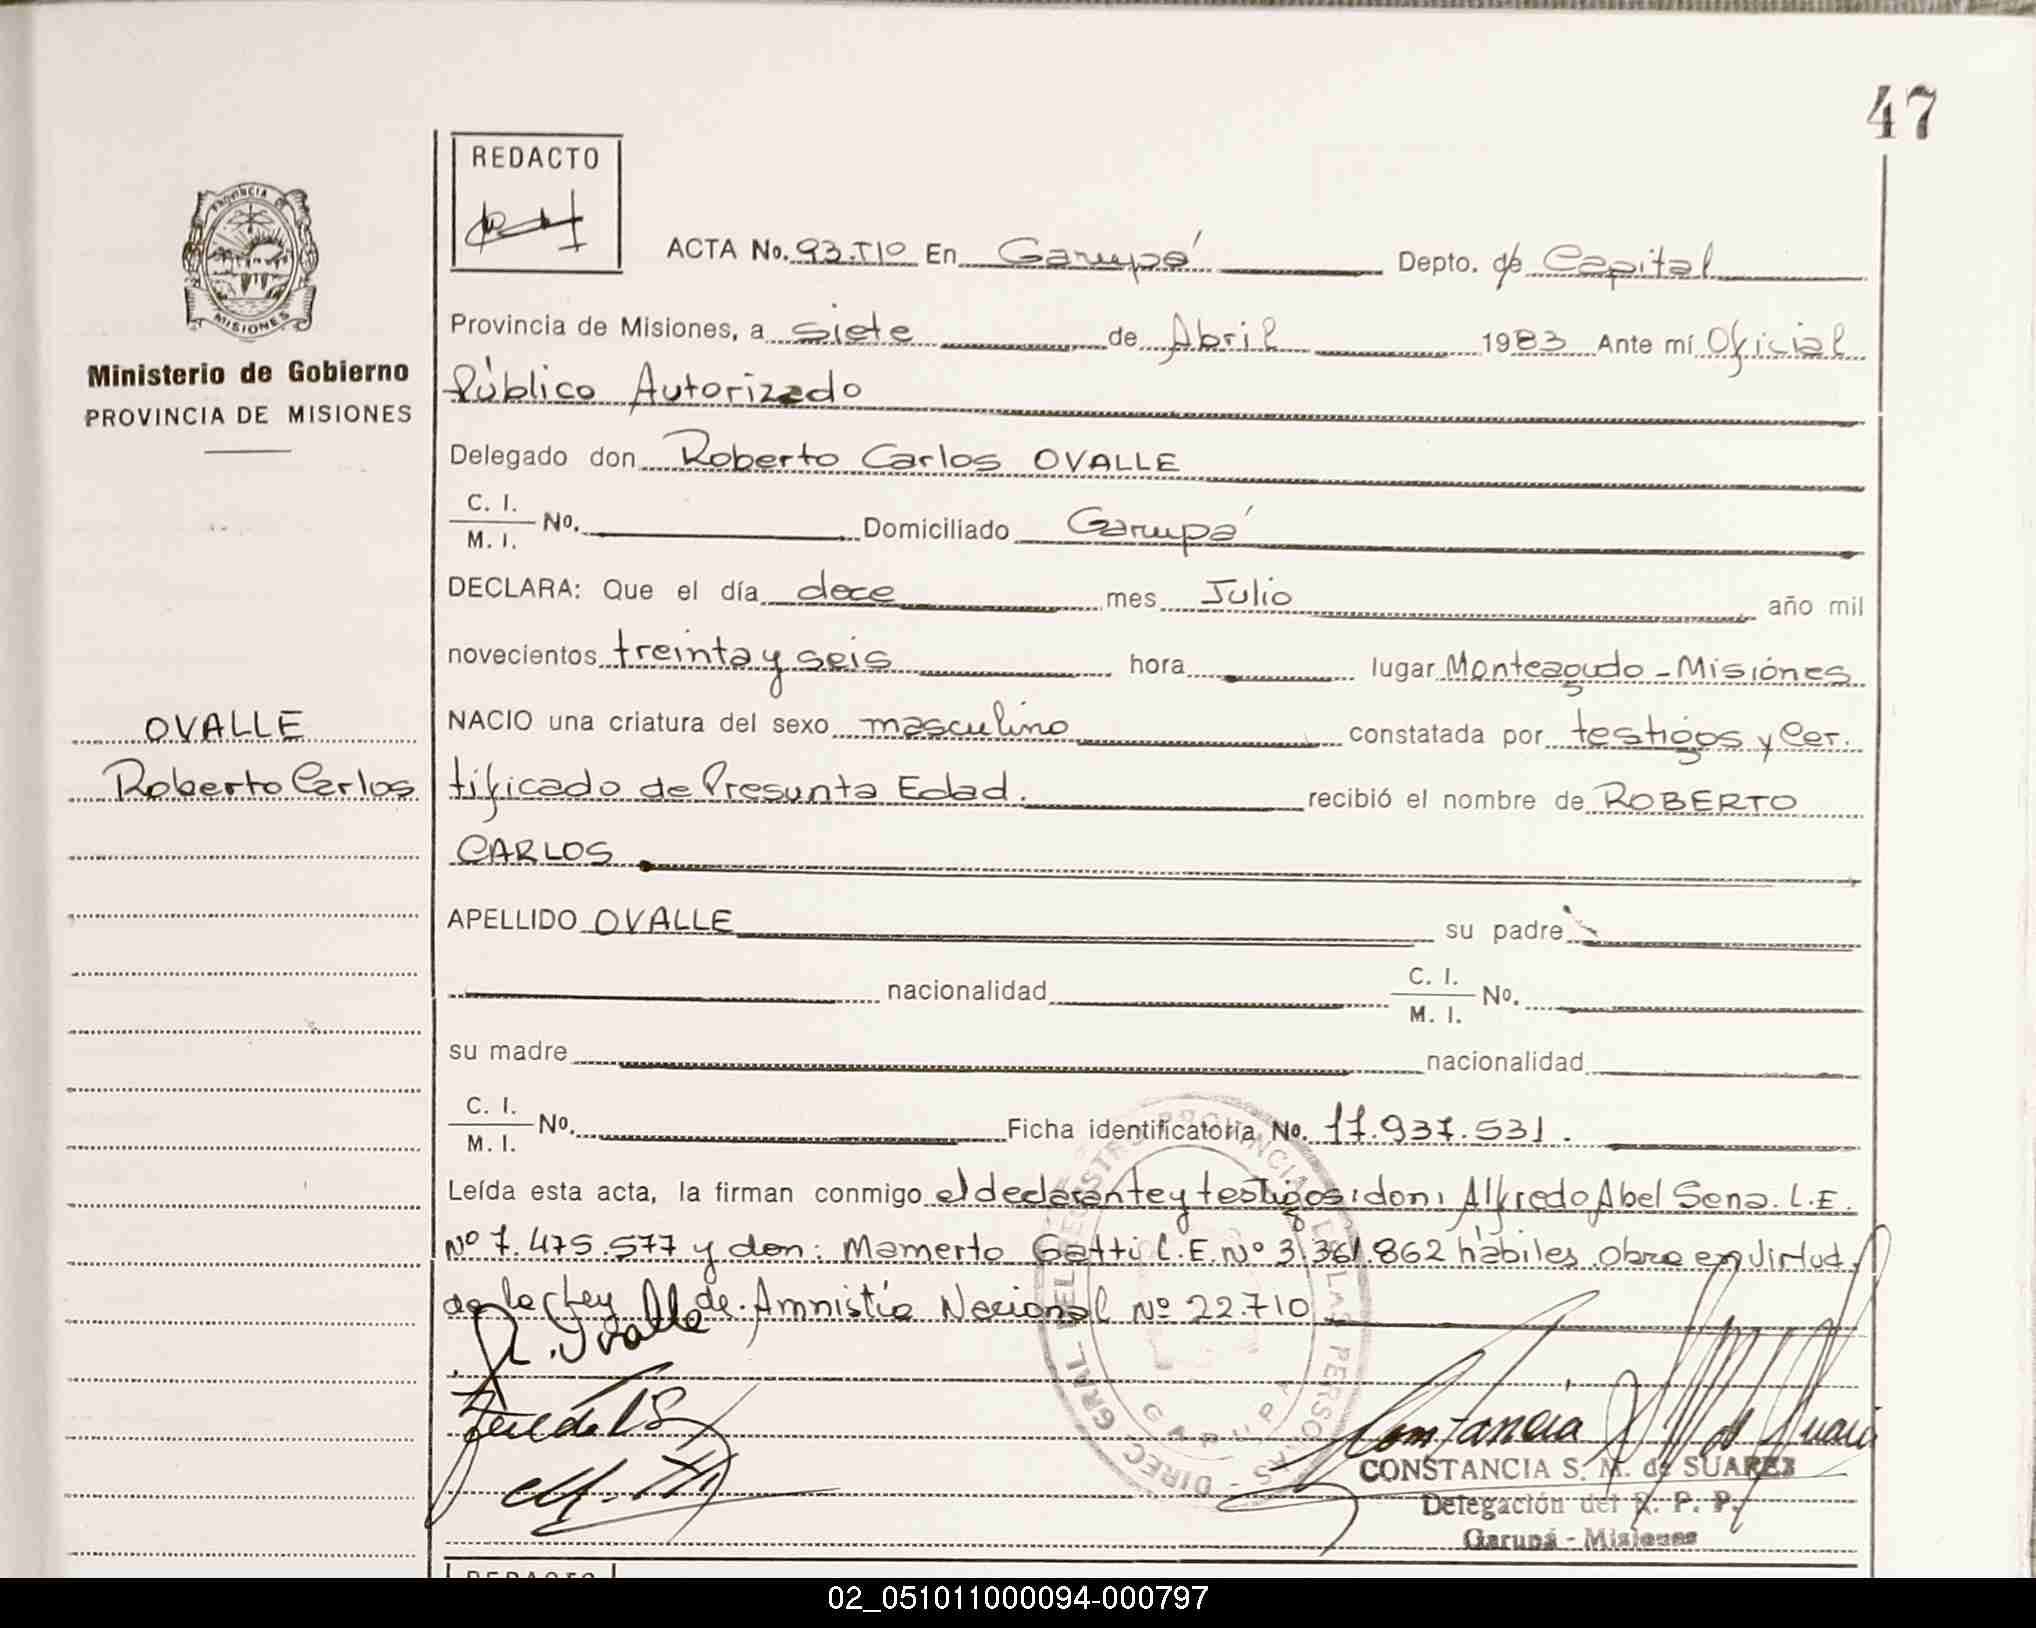 47
REDACTO
PROVINCIA DE
MISIONES
Ministerio de Gobierno
PROVINCIA DE MISIONES
ACTA No. 93.TIO En Garupá Depto. de Capital
Provincia de Misiones, a siete de Abril 1983 Ante mí Oficial
Público Autorizado
Delegado don Roberto Carlos OVALLE
C. I.
M. I. No. Domiciliado Garupá
DECLARA: Que el día doce mes Julio año mil
novecientos treinta y seis hora lugar Monteagudo - Misiones
OVALLE
Roberto Carlos
NACIO una criatura del sexo masculino constatada por testigos y Cer.
tificado de Presunta Edad. recibió el nombre de ROBERTO
CARLOS
APELLIDO OVALLE su padre
nacionalidad C. I.
M. I. No.
su madre nacionalidad
C. I.
M. I. No. Ficha identificatoria No. 17.937.531.
Leída esta acta, la firman conmigo el declarante y testigos: don: Alfredo Abel Sena. L.E.
Nº 7.475.577 y don: Mamerto Gatti L.E. Nº 3.361.862 hábiles. Obra en virtud
de la Ley de Amnistía Nacional Nº 22.710
R. Ovalle
DIREC. GRAL. DEL REGISTRO PROVINCIAL DE LAS PERSONAS -
GARUPA
CONSTANCIA S. M. de SUAREZ
Delegación del R. P. P.
Garupá - Misiones
REDACTO
02_051011000094-000797